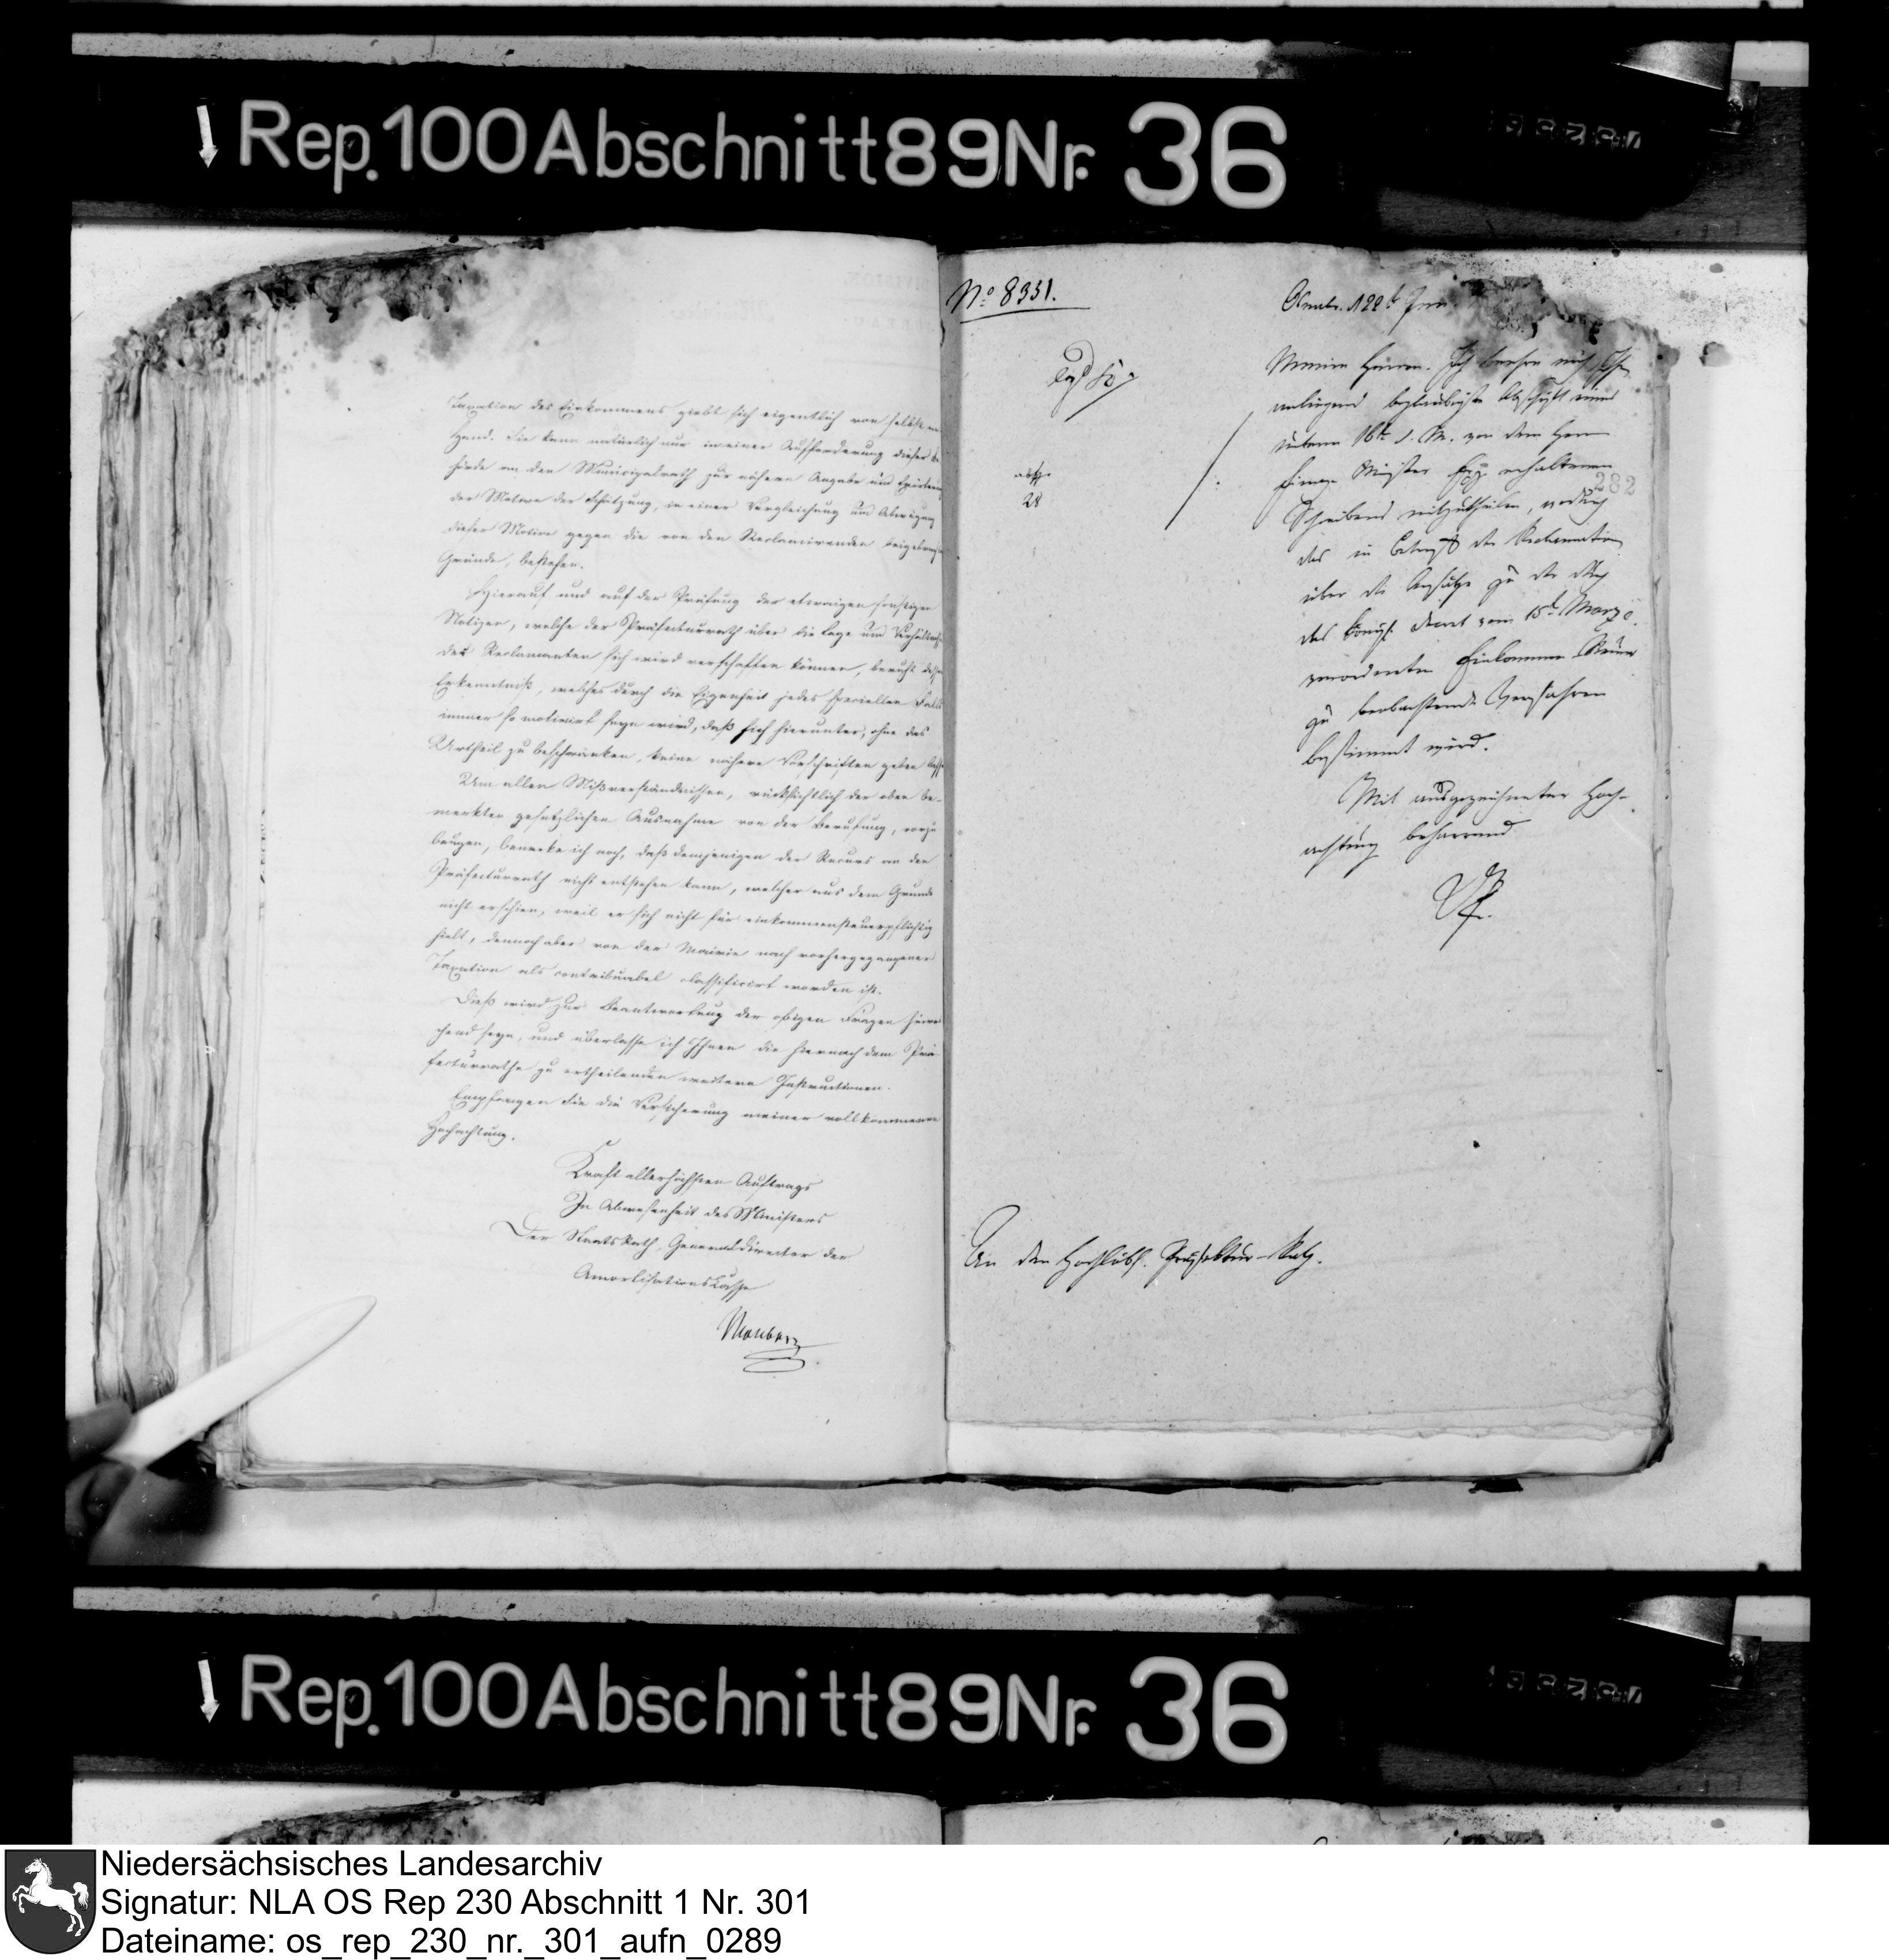 Rep. 100 Abschnitt 89 Nr. 36
Taxation des Einkommens giebt sich eigentlich von selbst an
Hand. Sie kann natürlich nur in einer Aufforderung dieser
hörde an den Municipalrath zur nähern Angabe und
der Motive der Schätzung, in einer Vergleichung und Abwägung
dieser Motive gegen die von den Reclamirenden
Gründe, bestehen.
Hierauf und auf der Prüfung der etwaigen sonstigen
Notizen, welche der Präfecturrath über die Lage und
des Reclamanten sich wird verschaffen können, beruht
Erkenntniß, welches durch die Eigenheit jedes speciellen
immer so motivirt seyn wird, daß sich hierunter, ohne das
Urtheil zu beschränken, keine nähere Vorschriften geben
Um allen Mißverständnissen, rücksichtlich der oben be-
merkten gesetzlichen Ausnahme von der Berufung, vorzu
beugen, bemerke ich noch, daß demjenigen der Recurs an den
Präfecturrath nicht entstehen kann, welcher aus dem Grunde
nicht erschien, weil er sich nicht für einkommensteuerpflichtig
hielt, dennoch aber von der Mairie nach vorhergegangener
Taxation als contribuabel classificirt worden ist.
Dieß wird zur Beantwortung der obigen Fragen hinrei
chend seyn, und überlasse ich Ihnen die hiernach dem Prä
fecturrathe zu ertheilenden weitern Instructionen.
Empfangen Sie die Versicherung meiner vollkommenen
Hochachtung.
Kraft allerhöchsten Auftrags
In Abwesenheit des Ministers
Der Staats Rath, Generaldirector der
Amortisations Casse
No 8351.
28
Meine Herren. Ich beehre mich
anliegend beglaubigte Abschrift eines
unterm 16t d. M. von dem Herrn
Finanz Minister erhaltenen
282
Schreibens mitzutheilen, wodurch
das in Betreff der Reclamation
über die Ansätze zu der durch
das Königl. Decret vom 15t März
verordneten Einkommen Steuer
zu beobachtende Verfahren
bestimmt wird.
Mit ausgezeichneter Hoch-
achtung beharrend
An den Hochlöbl. Präfektur-Rath.
Rep. 100 Abschnitt 89 Nr. 36
Niedersächsisches Landesarchiv
Signatur: NLA OS Rep 230 Abschnitt 1 Nr. 301
Dateiname: os_rep_230_nr._301_aufn_0289